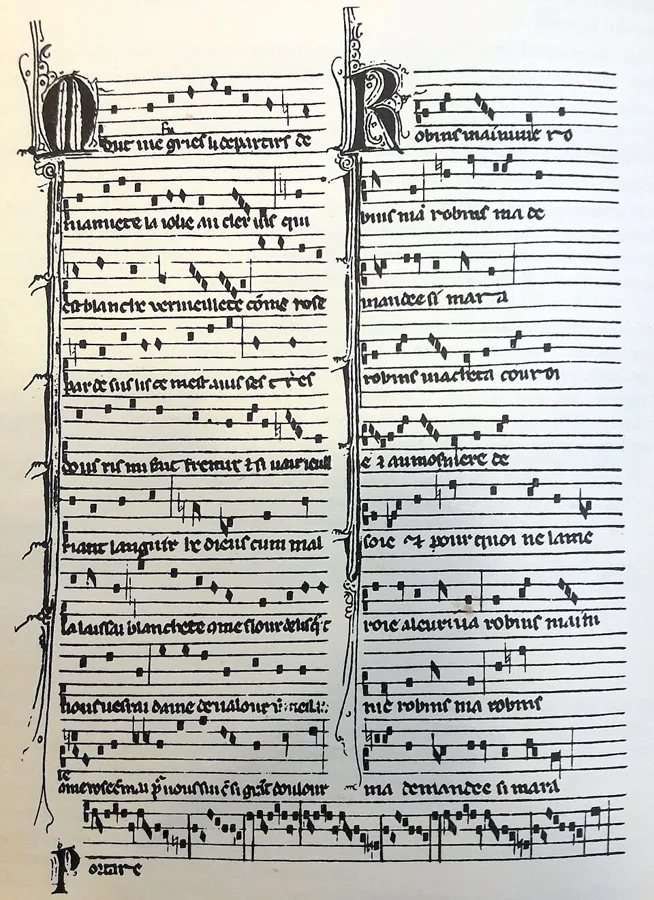 Mout me fu gries li departirs de
mamiete la iolie au cler uis qui
est blanche vermeillete cōme rose
par desus lis ce mest auis ses tres
dous ris mi fait fremir & si uair ieull
riant languir he dieus cum mal
la laissai blanchete flour de lis
uous uerrai dame de ualour
rose uous sui si doulour
Robins maimme ro
bins ma robins ma de
mandee si mara
robins macheta couroi
e & aumosniere de
soie & pour quoi ne lame
roie aleuriua robins maim
me robins ma robins
ma demandee si mara
Portare